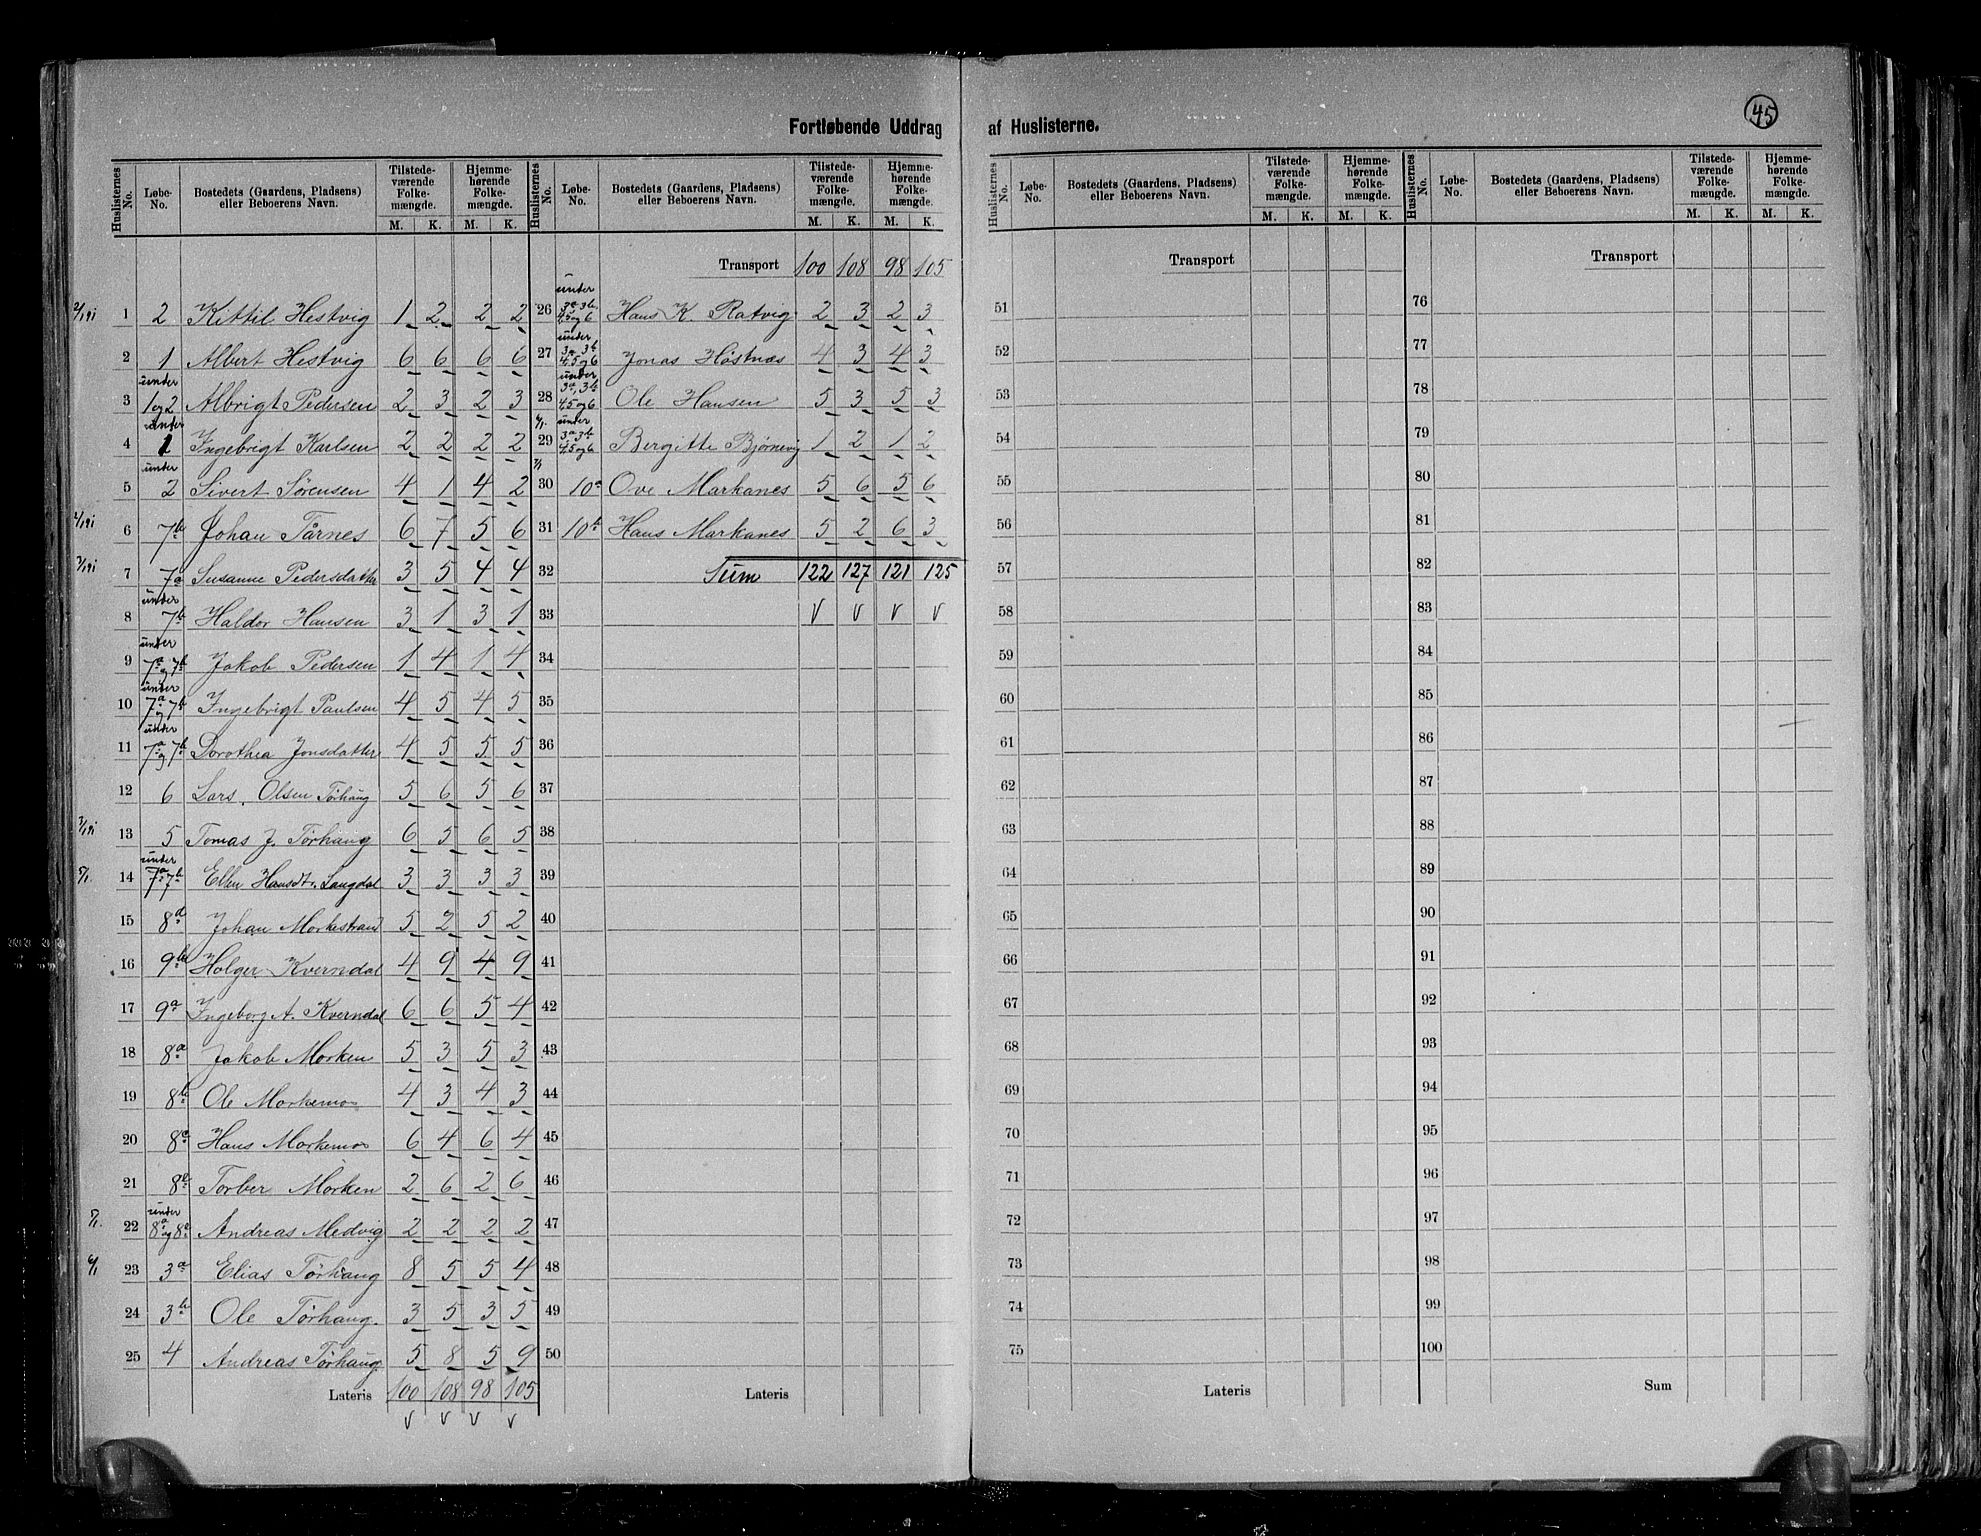 45
Fortløbende Uddrag af Huslisterne.
Huslisternes No. Løbe-No. Bostedets (Gaardens, Pladsens) eller Beboerens Navn. Tilstedeværende Folkemængde. M. K. Hjemmehørende Folkemængde. M. K.
1 2 Kittil Hestvig 1 2 2 2
2 1 Albert Hestvig 6 6 6 6
3 under 1 og 2 Albrigt Pedersen 2 3 2 3
4 under 1 Ingebrigt Karlsen 2 2 2 2
5 under 2 Sivert Sørensen 4 1 4 2
6 7b Johan Tårnes 6 7 5 6
7 7a Susanne Pedersdatter 3 5 4 4
8 under 7b Haldor Hansen 3 1 3 1
9 under 7a og 7b Jakob Pedersen 1 4 1 4
10 under 7a og 7b Ingebrigt Paulsen 4 5 4 5
11 under 7a og 7b Dorothea Jonsdatter 4 5 5 5
12 6 Lars Olsen Tørhaug 5 6 5 6
13 5 Tomas J. Tørhaug 6 5 6 5
14 under 7a 7b Ellen Hansdtr. Langdal 3 3 3 3
15 8d Johan Morkestrand 5 2 5 2
16 9b Holger Kverndal 4 9 4 9
17 9a Ingeborg A. Kverndal 6 6 5 4
18 8a Jakob Morken 5 3 5 3
19 8b Ole Morkemo 4 3 4 3
20 8c Hans Morkemo 6 4 6 4
21 8e Torber Morken 2 6 2 6
22 under 8a og 8e Andreas Medvig 2 2 2 2
23 3a Elias Tørhaug 8 5 5 4
24 3b Ole Tørhaug. 3 5 3 5
25 4 Andreas Tørhaug 5 8 5 9
Lateris 100 108 98 105
v v v v
Huslisternes No. Løbe-No. Bostedets (Gaardens, Pladsens) eller Beboerens Navn. Tilstedeværende Folkemængde. M. K. Hjemmehørende Folkemængde. M. K.
Transport 100 108 98 105
26 under 3a 3b 4.5 og 6 Hans K. Ratvig 2 3 2 3
27 under 3a 3b 4.5 og 6 Jonas Høstnæs 4 3 4 3
28 under 3a, 3b 4.5 og 6 Ole Hansen 5 3 5 3
29 under 3a 3b 4.5 og 6 Bergitte Bjørnevig 1 2 1 2
30 10a Ove Markanes 5 6 5 6
31 10b Hans Markanes 5 2 6 3
32 Sum 122 127 121 125
33 v v v v
34
35
36
37
38
39
40
41
42
43
44
45
46
47
48
49
50
Lateris
Huslisternes No. Løbe-No. Bostedets (Gaardens, Pladsens) eller Beboerens Navn. Tilstedeværende Folkemængde. M. K. Hjemmehørende Folkemængde. M. K.
Transport
51
52
53
54
55
56
57
58
59
60
61
62
63
64
65
66
67
68
69
70
71
72
73
74
75
Lateris
Huslisternes No. Løbe-No. Bostedets (Gaardens, Pladsens) eller Beboerens Navn. Tilstedeværende Folkemængde. M. K. Hjemmehørende Folkemængde. M. K.
Transport
76
77
78
79
80
81
82
83
84
85
86
87
88
89
90
91
92
93
94
95
96
97
98
99
100
Sum